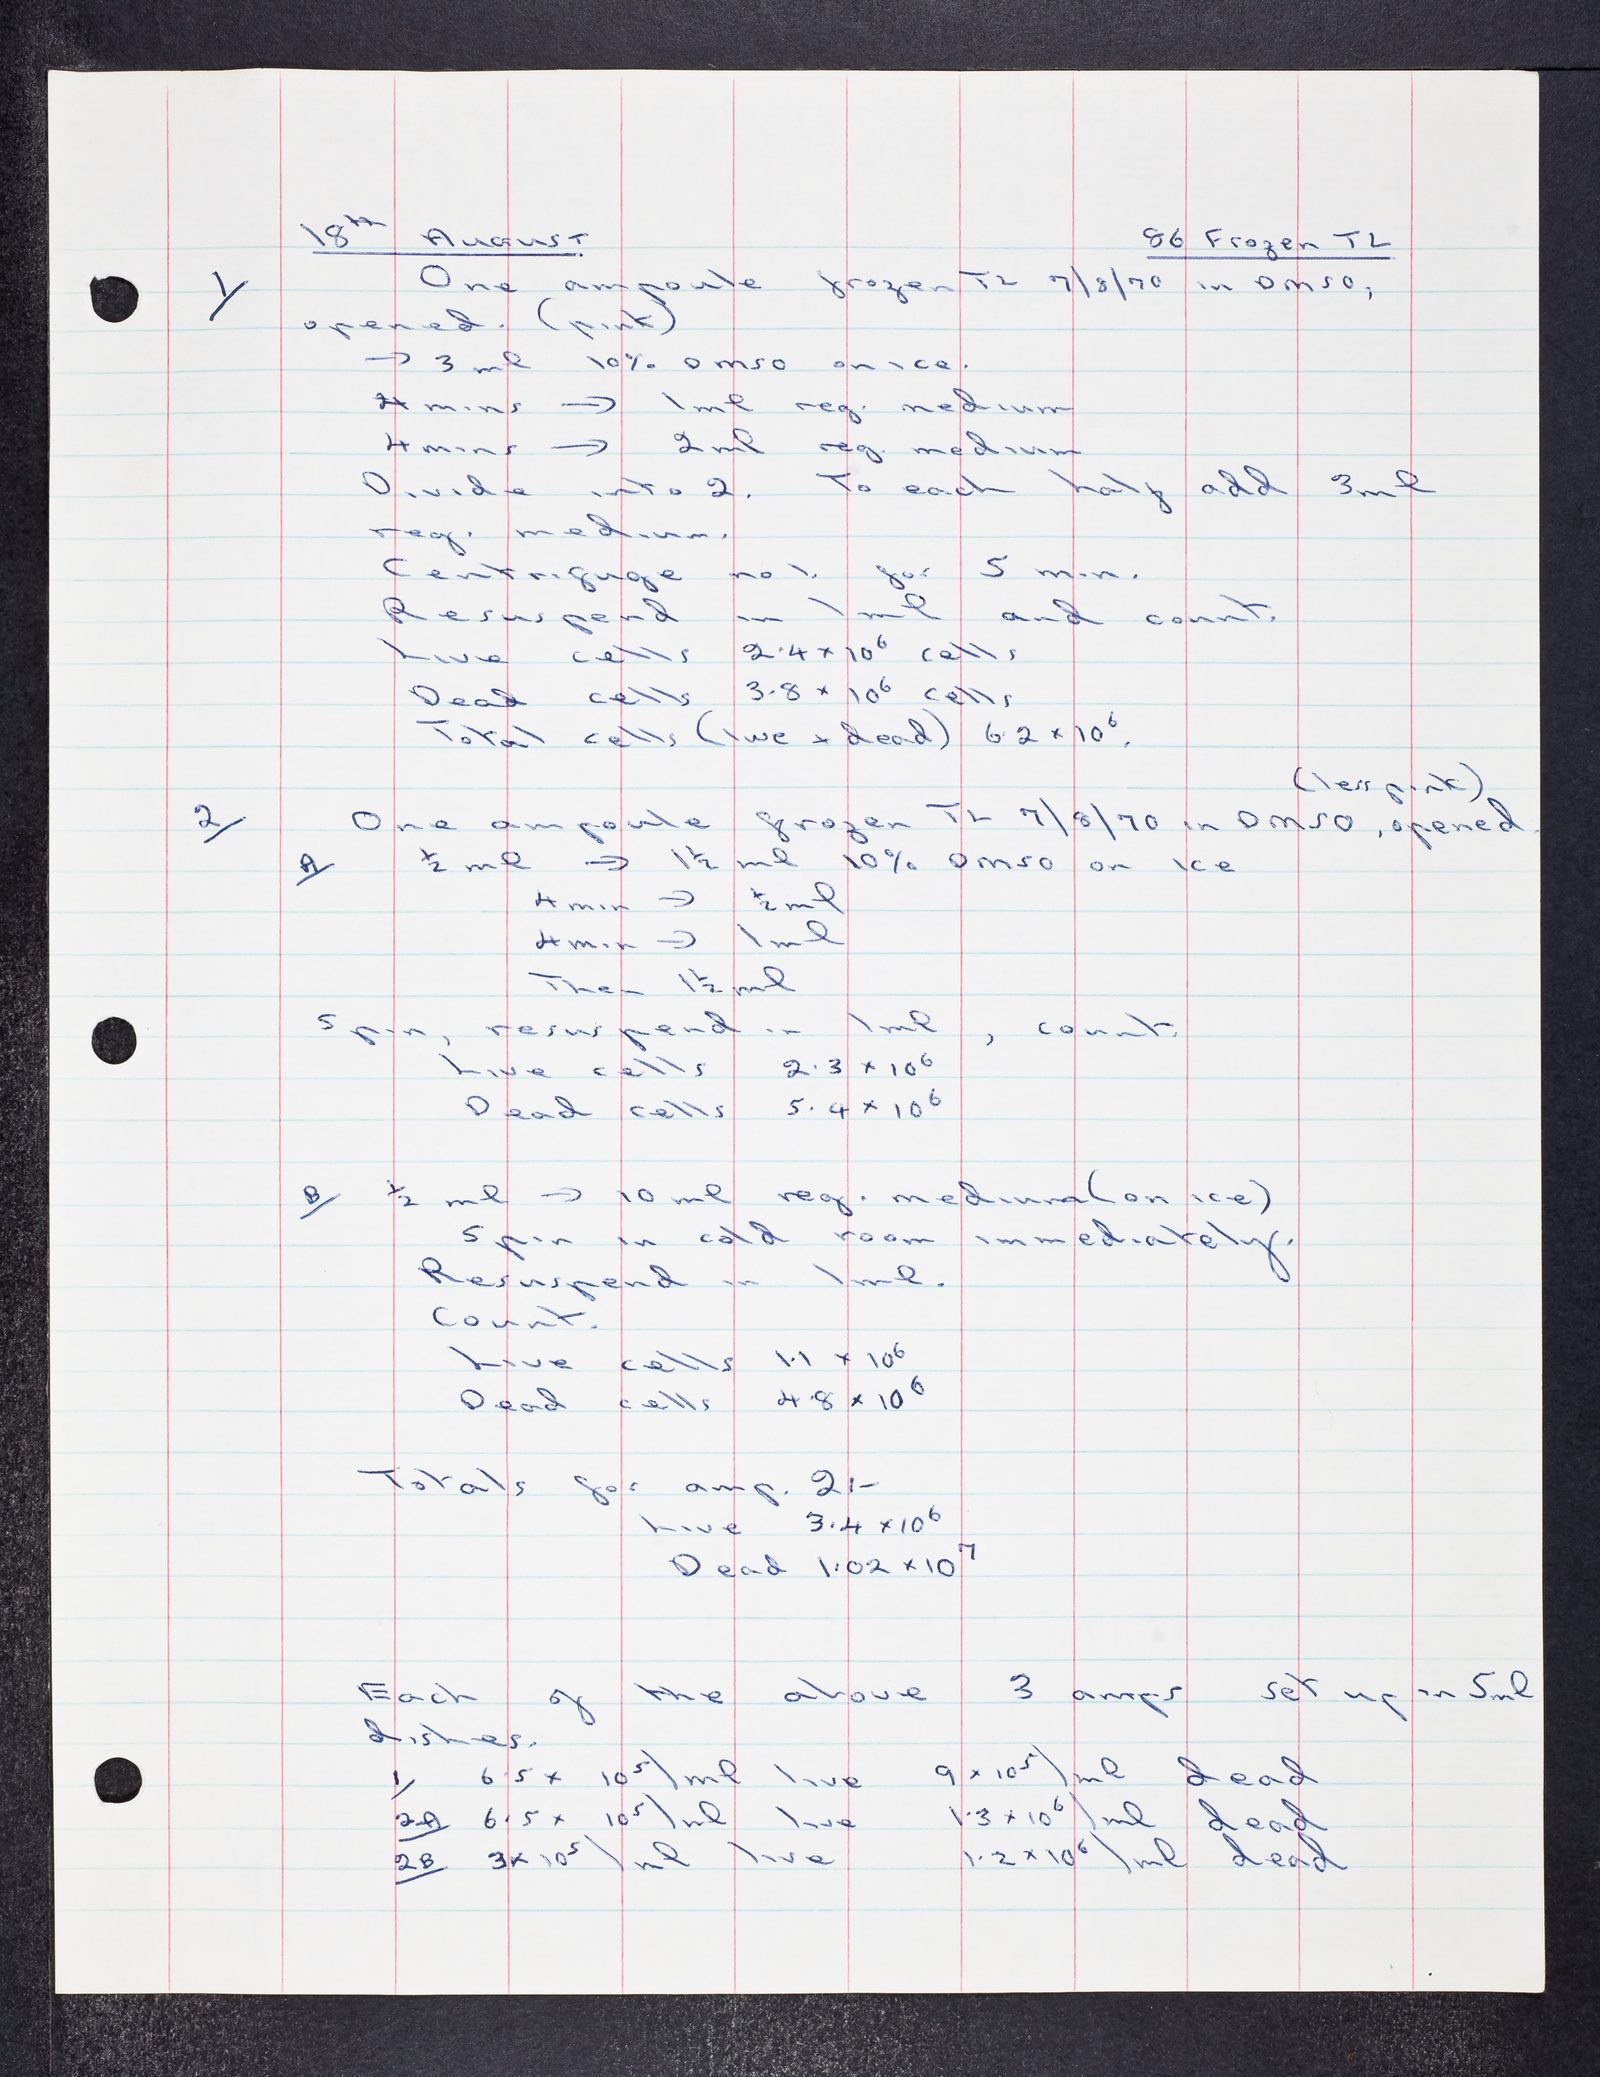 18th August 86 Frozen TL
1/ One ampoule frozen TL 7/8/70 in DMSO,
opened. (pink)
→ 3 ml 10% DMSO on ice.
4 mins → 1ml reg. medium
4 mins → 2ml reg. medium
Divide into 2. To each half add 3ml
reg. medium.
Centrifuge no 1. for 5 min.
Resuspend in 1ml and count.
Live cells 2.4 × 10⁶ cells
Dead cells 3.8 × 10⁶ cells
Total cells (live + dead) 6.2 × 10⁶.
(less pink)
2/ One ampoule frozen TL 7/8/70 in DMSO, opened.
A/ ½ ml → 1½ ml 10% DMSO on ice
4 min → ½ ml
4 min → 1ml
Then 1½ ml
Spin, resuspend in 1ml, count.
Live cells 2.3 × 10⁶
Dead cells 5.4 × 10⁶
B/ ½ ml → 10 ml reg. medium (on ice)
Spin in cold room immediately.
Resuspend in 1ml.
Count.
Live cells 1.1 × 10⁶
Dead cells 4.8 × 10⁶
Totals for amp. 2:-
Live 3.4 × 10⁶
Dead 1.02 × 10⁷
Each of the above 3 amps set up in 5ml
dishes.
1/ 6.5 × 10⁵/ml live 9 × 10⁵/ml dead
2A 6.5 × 10⁵/ml live 1.3 × 10⁶/ml dead
2B 3 × 10⁵/ml live 1.2 × 10⁶/ml dead